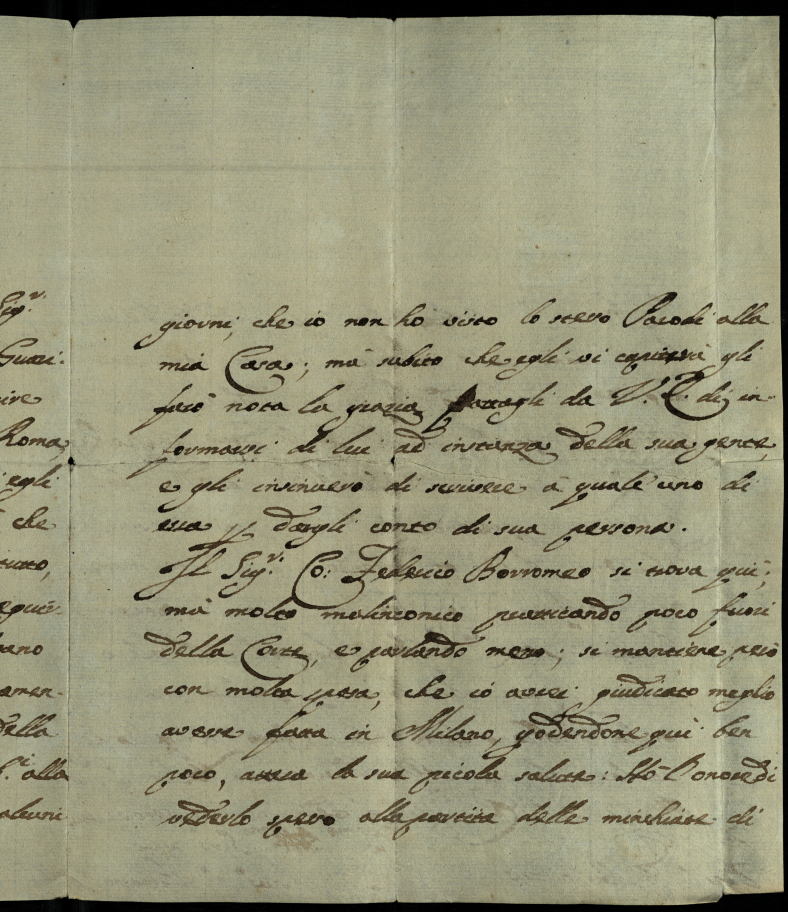 Sig.r
Guazi-
ire
Roma
egli
che
tutto,
bano
amen-
della
alla
alcuni
giorni, che io non hò visto lo stesso Parodi alla
mia Casa; mà subito che egli vi capiterà gli
farò nota la grazia fattagli da V. P. di in-
formarsi di lui ad instanza della sua gente,
e gli insinuerò di scrivere à quale uno di
essa p dargli conto di sua persona.
Il Sig.r Co: Federico Borromeo si trova quì;
mà molto malinconico pratticando poco fuori
della Corte, e parlando meno; si mantiene però
con molta spesa, che io averei giudicato meglio
avesse fatta in Milano, godendone quì ben
poco, attesa la sua picola salute: Hò l'onore di
vederlo spesso alla partita delle minchiate di